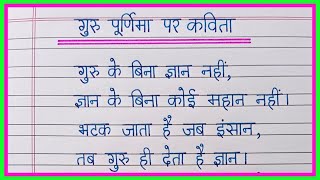 गुरु पूर्णिमा पर कविता
गुरु के बिना ज्ञान नहीं,
ज्ञान के बिना कोई महान नहीं।
भटक जाता है जब इंसान,
तब गुरु ही देता है ज्ञान।